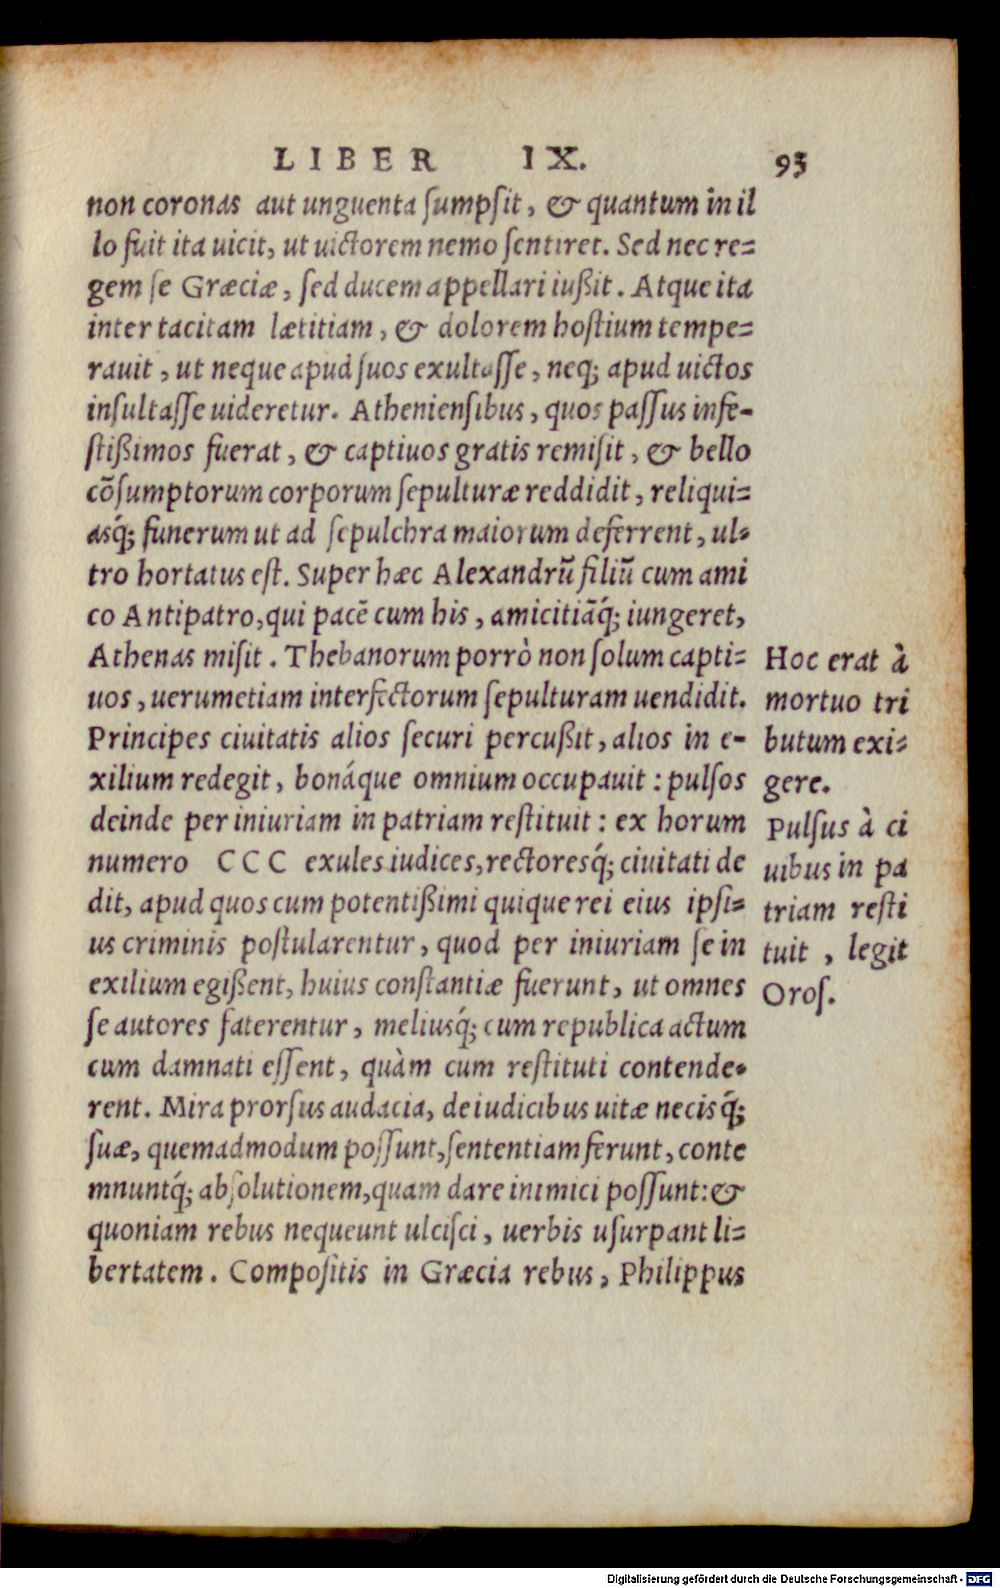 LIBER IX. 95
non coronas aut unguenta ſumpſit, & quantum in il
lo fuit ita uicit, ut uictorem nemo ſentiret. Sed nec re=
gem ſe Græciæ, ſed ducem appellari iußit. Atque ita
inter tacitam lætitiam, & dolorem hoſtium tempe=
rauit, ut neque apud ſuos exultaſſe, neq; apud uictos
inſultaſſe uideretur. Athenienſibus, quos paſſus infe-
ſtißimos fuerat, & captiuos gratis remiſit, & bello
cõſumptorum corporum ſepulturæ reddidit, reliqui=
asq́; funerum ut ad ſepulchra maiorum deferrent, ul=
tro hortatus eſt. Super hæc Alexandrũ filiũ cum ami
co Antipatro, qui pacẽ cum his, amicitiãq́; iungeret,
Athenas miſit. Thebanorum porrò non ſolum capti=
uos, uerumetiam interfectorum ſepulturam uendidit.
Principes ciuitatis alios ſecuri percußit, alios in e-
xilium redegit, bonáque omnium occupauit : pulſos
deinde per iniuriam in patriam reſtituit : ex horum
numero CCC exules iudices, rectoresq́; ciuitati de
dit, apud quos cum potentißimi quique rei eius ipſi=
us criminis poſtularentur, quod per iniuriam ſe in
exilium egißent, huius conſtantiæ fuerunt, ut omnes
ſe autores faterentur, meliusq́; cum republica actum
cum damnati eſſent, quàm cum reſtituti contende=
rent. Mira prorſus audacia, de iudicibus uitæ necisq́;
ſuæ, quemadmodum poſſunt, ſententiam ferunt, conte
mnuntq́; abſolutionem, quam dare inimici poſſunt: &
quoniam rebus nequeunt ulciſci, uerbis uſurpant li=
bertatem. Compoſitis in Græcia rebus, Philippus
Hoc erat à
mortuo tri
butum exi=
gere.
Pulſus à ci
uibus in pa
triam reſti
tuit, legit
Oroſ.
Digitalisierung gefördert durch die Deutsche Forschungsgemeinschaft - DFG